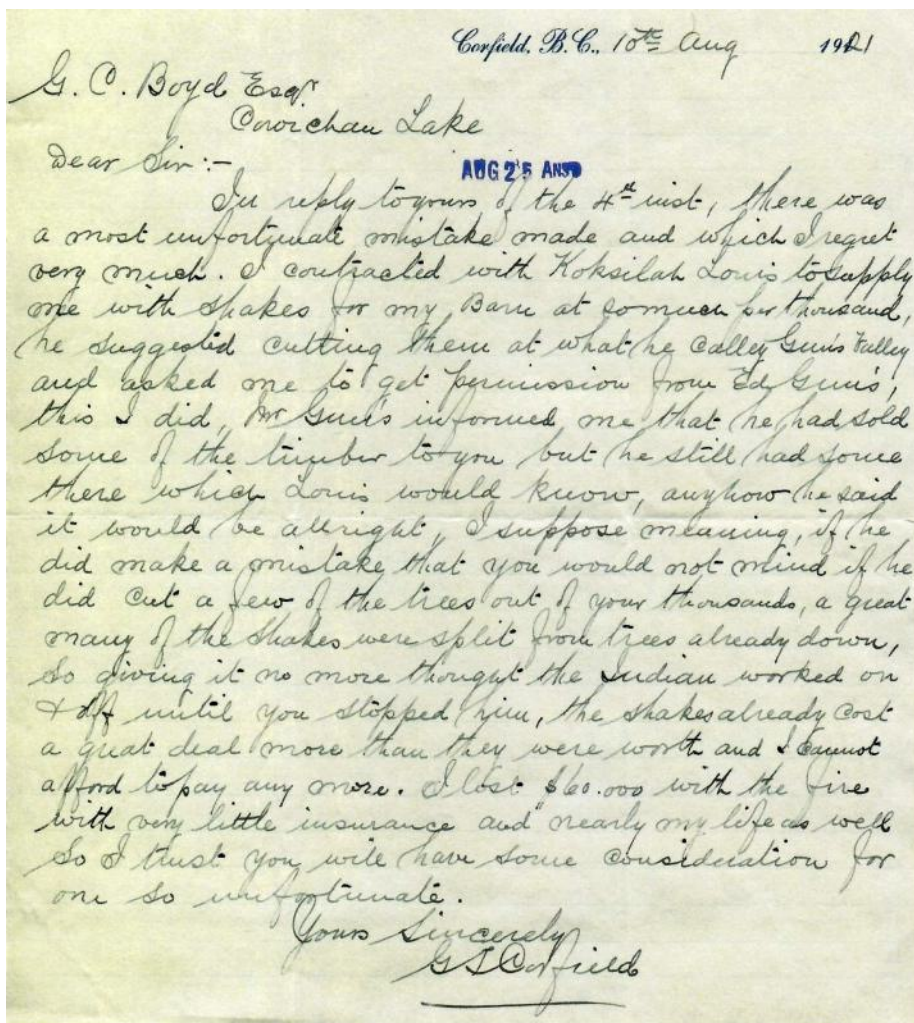 Corfield, B.C., 10th Aug 1921
G. C. Boyd Esqr
Cowichan Lake
Dear Sir:-
AUG 25 ANSD
In reply to yours of the 4th inst, there was
a most unfortunate mistake made and which I regret
very much. I contracted with Koksilah Louis to supply
me with shakes for my Barn at so much per thousand,
he suggested cutting them at what he calley Guns Valley
and asked me to get permission from Ed Guns,
this I did, Mr Guns informed me that he had sold
some of the timber to you but he still had some
there which Louis would know, anyhow he said
it would be allright, I suppose meaning, if he
did make a mistake that you would not mind if he
did cut a few of the trees out of your thousands, a great
many of the shakes were split from trees already down,
So giving it no more thought the Indian worked on
& off until you stopped him, the shakes already cost
a great deal more than they were worth and I cannot
afford to pay any more. I lost $60.000 with the fire
with very little insurance and nearly my life as well
So I trust you will have some consideration for
one so unfortunate.
Yours Sincerely
G T Corfield